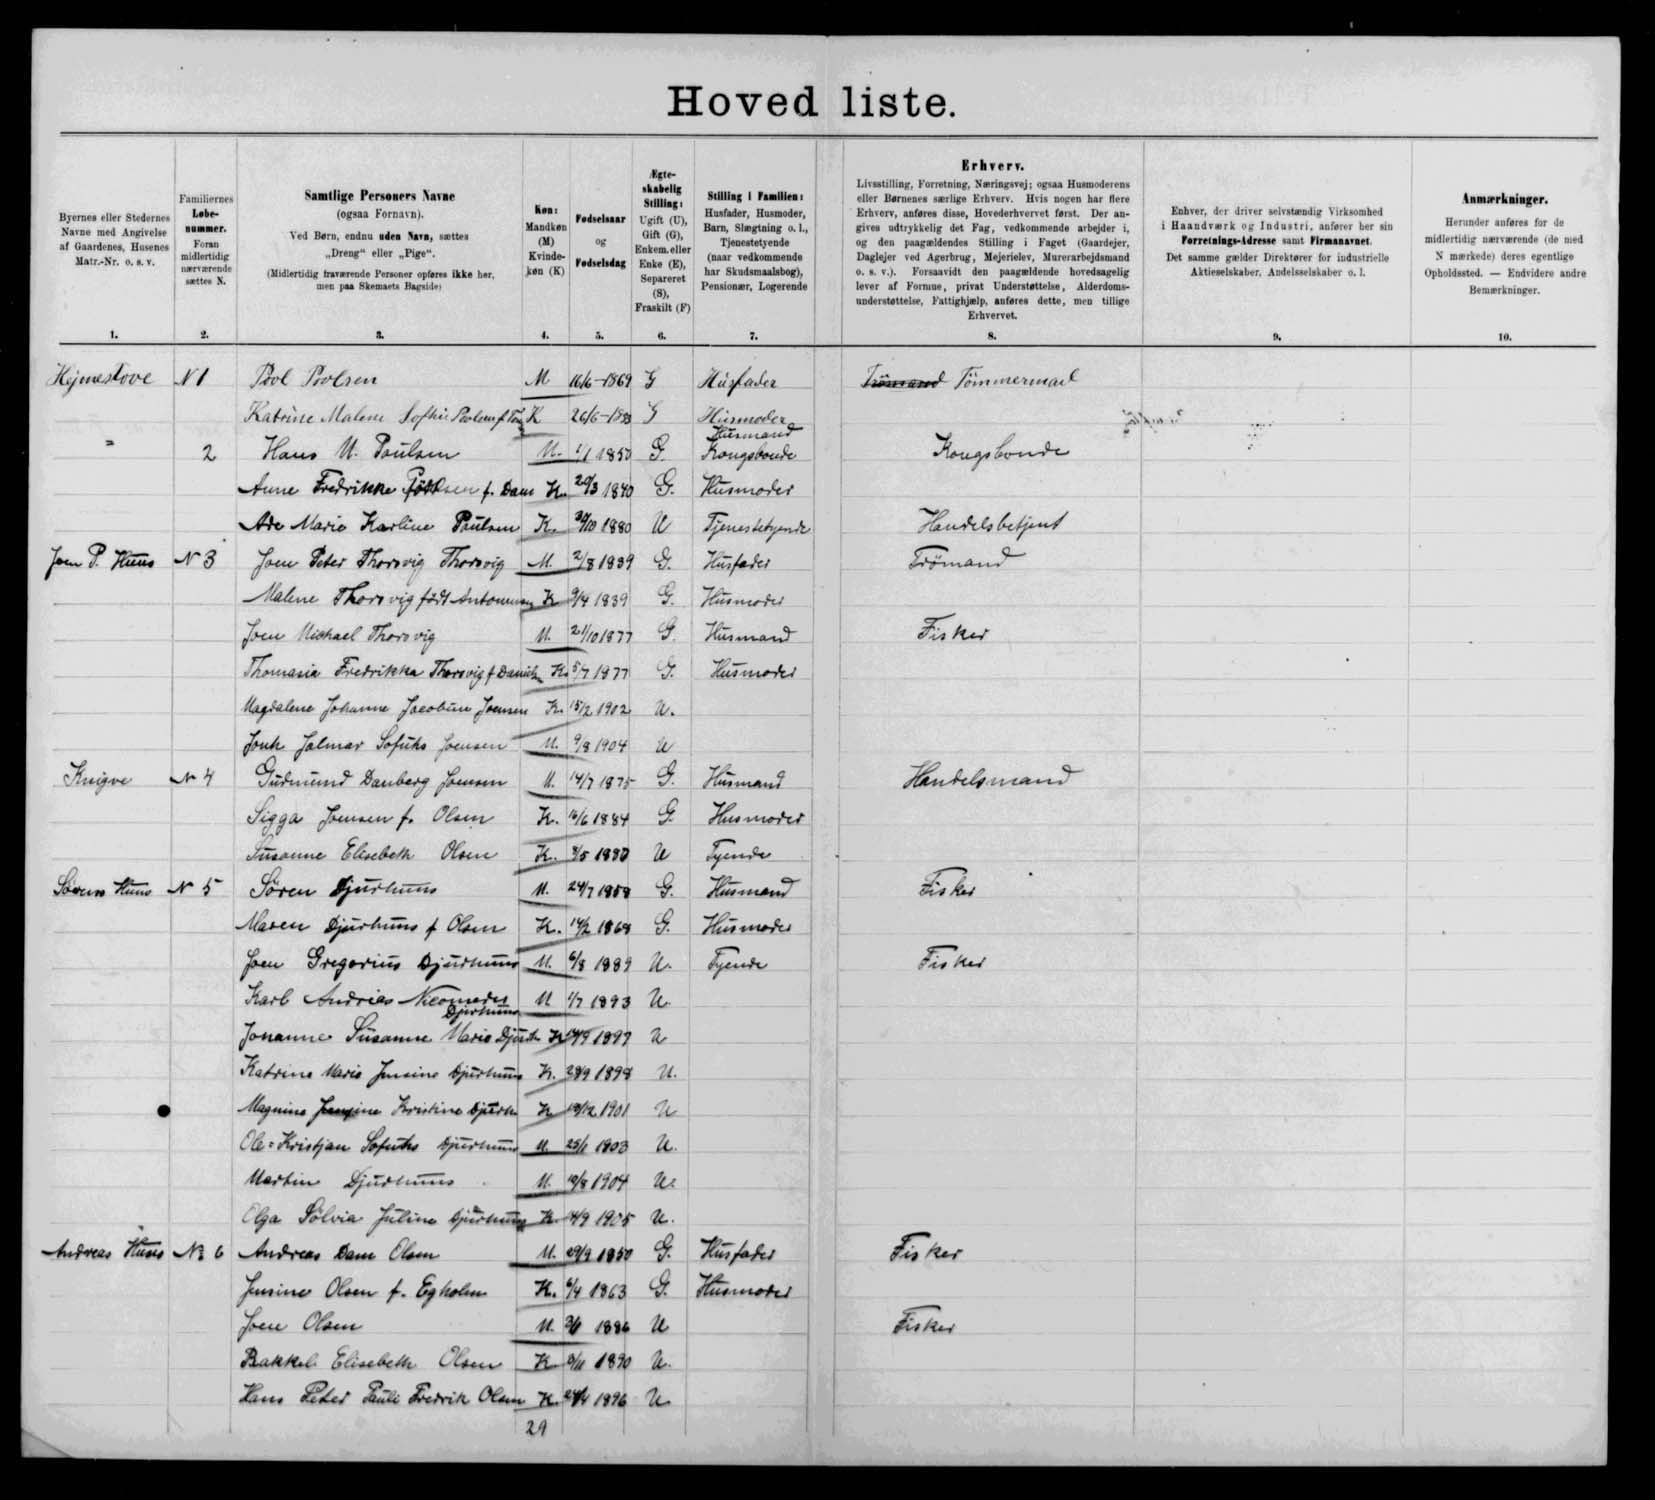 Hovedliste.
Byernes eller Stedernes Navne med Angivelse af Gaardenes, Husenes Matr.-Nr. o. s. v.
Familiernes Løbenummer. Foran midlertidig nærværende sættes N.
Samtlige Personers Navne (ogsaa Fornavn). Ved Børn, endnu uden Navn, sættes „Dreng“ eller „Pige“. (Midlertidig fraværende Personer opføres ikke her, men paa Skemaets Bagside)
Køn: Mandkøn (M) Kvindekøn (K)
Fødselsaar og Fødselsdag
Ægteskabelig Stilling: Ugift (U), Gift (G), Enkem. eller Enke (E), Separeret (S), Fraskilt (F)
Stilling i Familien: Husfader, Husmoder, Barn, Slægtning o. l., Tjenestetyende (naar vedkommende har Skudsmaalsbog), Pensionær, Logerende
Erhverv. Livsstilling, Forretning, Næringsvej; ogsaa Husmoderens eller Børnenes særlige Erhverv. Hvis nogen har flere Erhverv, anføres disse, Hovederhvervet først. Der angives udtrykkelig det Fag, vedkommende arbejder i, og den paagældendes Stilling i Faget (Gaardejer, Daglejer ved Agerbrug, Mejerielev, Murerarbejdsmand o. s. v.). Forsaavidt den paagældende hovedsagelig lever af Formue, privat Understøttelse, Alderdomsunderstøttelse, Fattighjælp, anføres dette, men tillige Erhvervet.
Enhver, der driver selvstændig Virksomhed i Haandværk og Industri, anfører her sin Forretnings-Adresse samt Firmanavnet. Det samme gælder Direktører for industrielle Aktieselskaber, Andelsselskaber o. l.
Anmærkninger. Herunder anføres for de midlertidig nærværende (de med N mærkede) deres egentlige Opholdssted. — Endvidere andre Bemærkninger.
1. 2. 3. 4. 5. 6. 7. 8. 9. 10.
Hejmestove N 1 Povl Povlsen M 16/6-1869 G Husfader Tømmermand
Katrine Malene Sofhie Povlsen f. K 26/6- G Husmoder
" 2 Hans M. Paulsen M. 1/1 1850 G. Husmand Kongsbonde Kongsbonde
Anne Fredrikke f. Dam K. 1840 G. Husmoder
Marie Karline Paulsen K. 1880 U Tjenestetyende Handelsbetjent
Joen P. Huus N 3 Joen Peter Thorsvig Thorsvig M. 2/8 1839 G. Husfader Trømand
Malene Thorsvig født K 9/4 1839 G. Husmoder
Joen Michael Thorsvig M. 21/10 1877 G. Husmand Fisker
Thomasia Fredrikka Thorsvig f K. 5/7 1877 G. Husmoder
Magdalene Johanne Jacobine Joensen K. 15/2 1902 U.
Jalmar Sofuhs Joensen M. 9/8 1904 U
Knigve N 4 Gudmund Danberg Joensen M. 14/7 1875 G. Husmand Handelsmand
Sigga Joensen f. Olsen K. 16/6 1884 G. Husmoder
Susanne Elisebeth Olsen K. U Tyende
Sørens Huus N 5 Søren Djurhuus M. 24/7 1858 G. Husmand Fisker
Maren Djurhuus f Olsen K. 14/2 1868 G. Husmoder
Joen Gregorius Djurhuus M. 6/8 1889 U. Tyende Fisker
Karl Andrias Nicomedes Djurhuus M 1/7 1893 U
Johanne Susanne Marie Djurh K 1897 U
Katrine Marie Jensine Djurhuus K. 28/9 1898 U.
Magnina Kristine Djurh K 1901 U
Ole=Kristjan Sofuhs Djurhuus M. 25/1 1903 U.
Martin Djurhuus M. 1904 U.
Olga Sølvia Juline Djurhuus K. 14/9 1905 U.
Andreas Huus № 6 Andreas Dam Olsen M. 29/9 1850 G. Husfader Fisker
Jensine Olsen f. Egholm K. 6/4 1863 G. Husmoder
Joen Olsen M. 1886 U Fisker
Rakkel Elisebeth Olsen K 1890 U.
Hans Peter Pauli Fredrik Olsen K. 1896 U
29